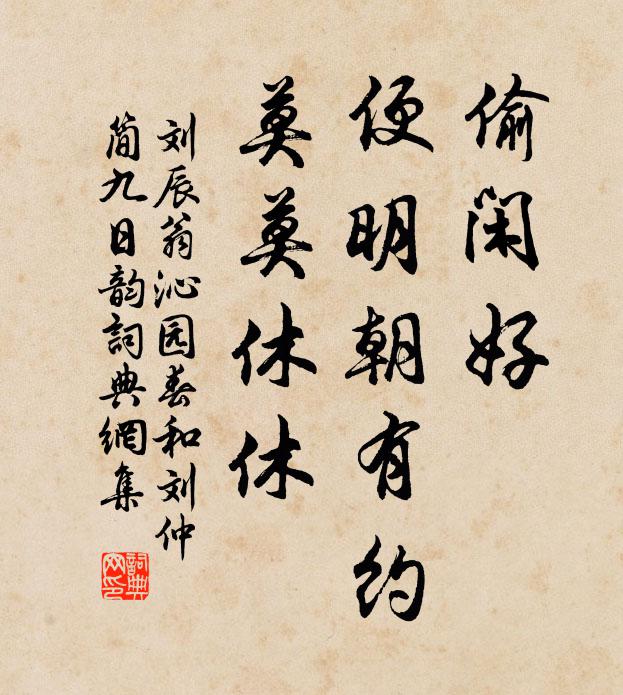 偷闲好
便明朝有约
莫莫休休
刘辰翁沁园春和刘仲
简九日韵詞典網集
詞典网印